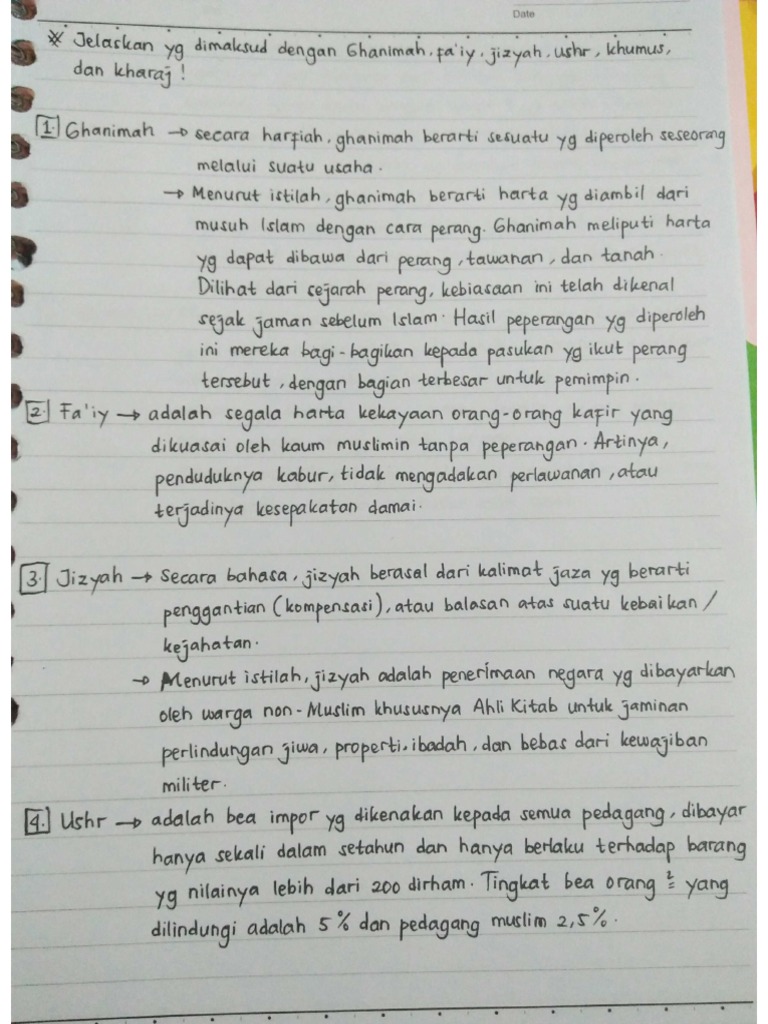 Date
* Jelaskan yg dimaksud dengan Ghanimah, fa'iy, jizyah, ushr, khumus,
dan kharaj!
1. Ghanimah → secara harfiah, ghanimah berarti sesuatu yg diperoleh seseorang
melalui suatu usaha.
→ Menurut istilah, ghanimah berarti harta yg diambil dari
musuh Islam dengan cara perang. Ghanimah meliputi harta
yg dapat dibawa dari perang, tawanan, dan tanah.
Dilihat dari sejarah perang, kebiasaan ini telah dikenal
sejak jaman sebelum Islam. Hasil peperangan yg diperoleh
ini mereka bagi-bagikan kepada pasukan yg ikut perang
tersebut, dengan bagian terbesar untuk pemimpin.
2. Fa'iy → adalah segala harta kekayaan orang-orang kafir yang
dikuasai oleh kaum muslimin tanpa peperangan. Artinya,
penduduknya kabur, tidak mengadakan perlawanan, atau
terjadinya kesepakatan damai.
3. Jizyah → Secara bahasa, jizyah berasal dari kalimat jaza yg berarti
penggantian (kompensasi), atau balasan atas suatu kebaikan/
kejahatan.
→ Menurut istilah, jizyah adalah penerimaan negara yg dibayarkan
oleh warga non-Muslim khususnya Ahli Kitab untuk jaminan
perlindungan jiwa, properti, ibadah, dan bebas dari kewajiban
militer.
4. Ushr → adalah bea impor yg dikenakan kepada semua pedagang, dibayar
hanya sekali dalam setahun dan hanya berlaku terhadap barang
yg nilainya lebih dari 200 dirham. Tingkat bea orang² yang
dilindungi adalah 5% dan pedagang muslim 2,5%.